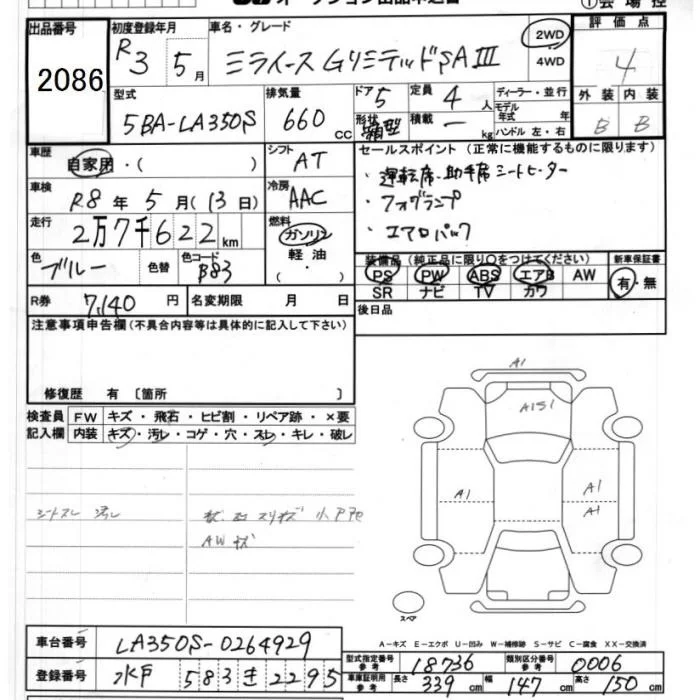 出品番号 初度登録年月 車名・グレード 2WD 4WD 評価点
2086 R3 5月 ミライース GリミテッドSAⅢ 4
型式 排気量 ドア 5 定員 4人 ディーラー・並行 外装 内装
5BA-LA350S 660cc 形状 箱型 積載 ー kg モデル年式 年 ハンドル 左・右 B B
車歴 自家用・( ) シフト AT セールスポイント (正常に機能するものに限ります)
車検 R8年5月(13日) 冷房 AAC ・運転席、助手席シートヒーター
・フォグランプ
走行 2万7千622km 燃料 ガソリン 軽油 ( ・ ) ・エアロパック
色 ブルー 色替 色コード B83 装備品 (純正品に限り○をつけてください) 新車保証書
PS PW ABS エアB AW 有・無
SR ナビ TV カワ
R券 7,140円 名変期限 月 日 後日品
注意事項申告欄(不具合内容等は具体的に記入して下さい)
修復歴 有 〔箇所 〕
検査員 FW キズ・飛石・ヒビ割・リペア跡・×要
記入欄 内装 キズ・汚レ・コゲ・穴・スレ・キレ・破レ
シートスレ 汚レ
AWキズ
A1
A1S1
A1 A1
A1
スペア
A-キズ E-エクボ U-凹み W-補修跡 S-サビ C-腐食 XX-交換済
車台番号 LA350S-0264929
型式指定番号 参考 18736 類別区分番号 参考 0006
登録番号 水戸 583 き 2295
車庫証明用 参考 長さ 339cm 幅 147cm 高さ 150cm